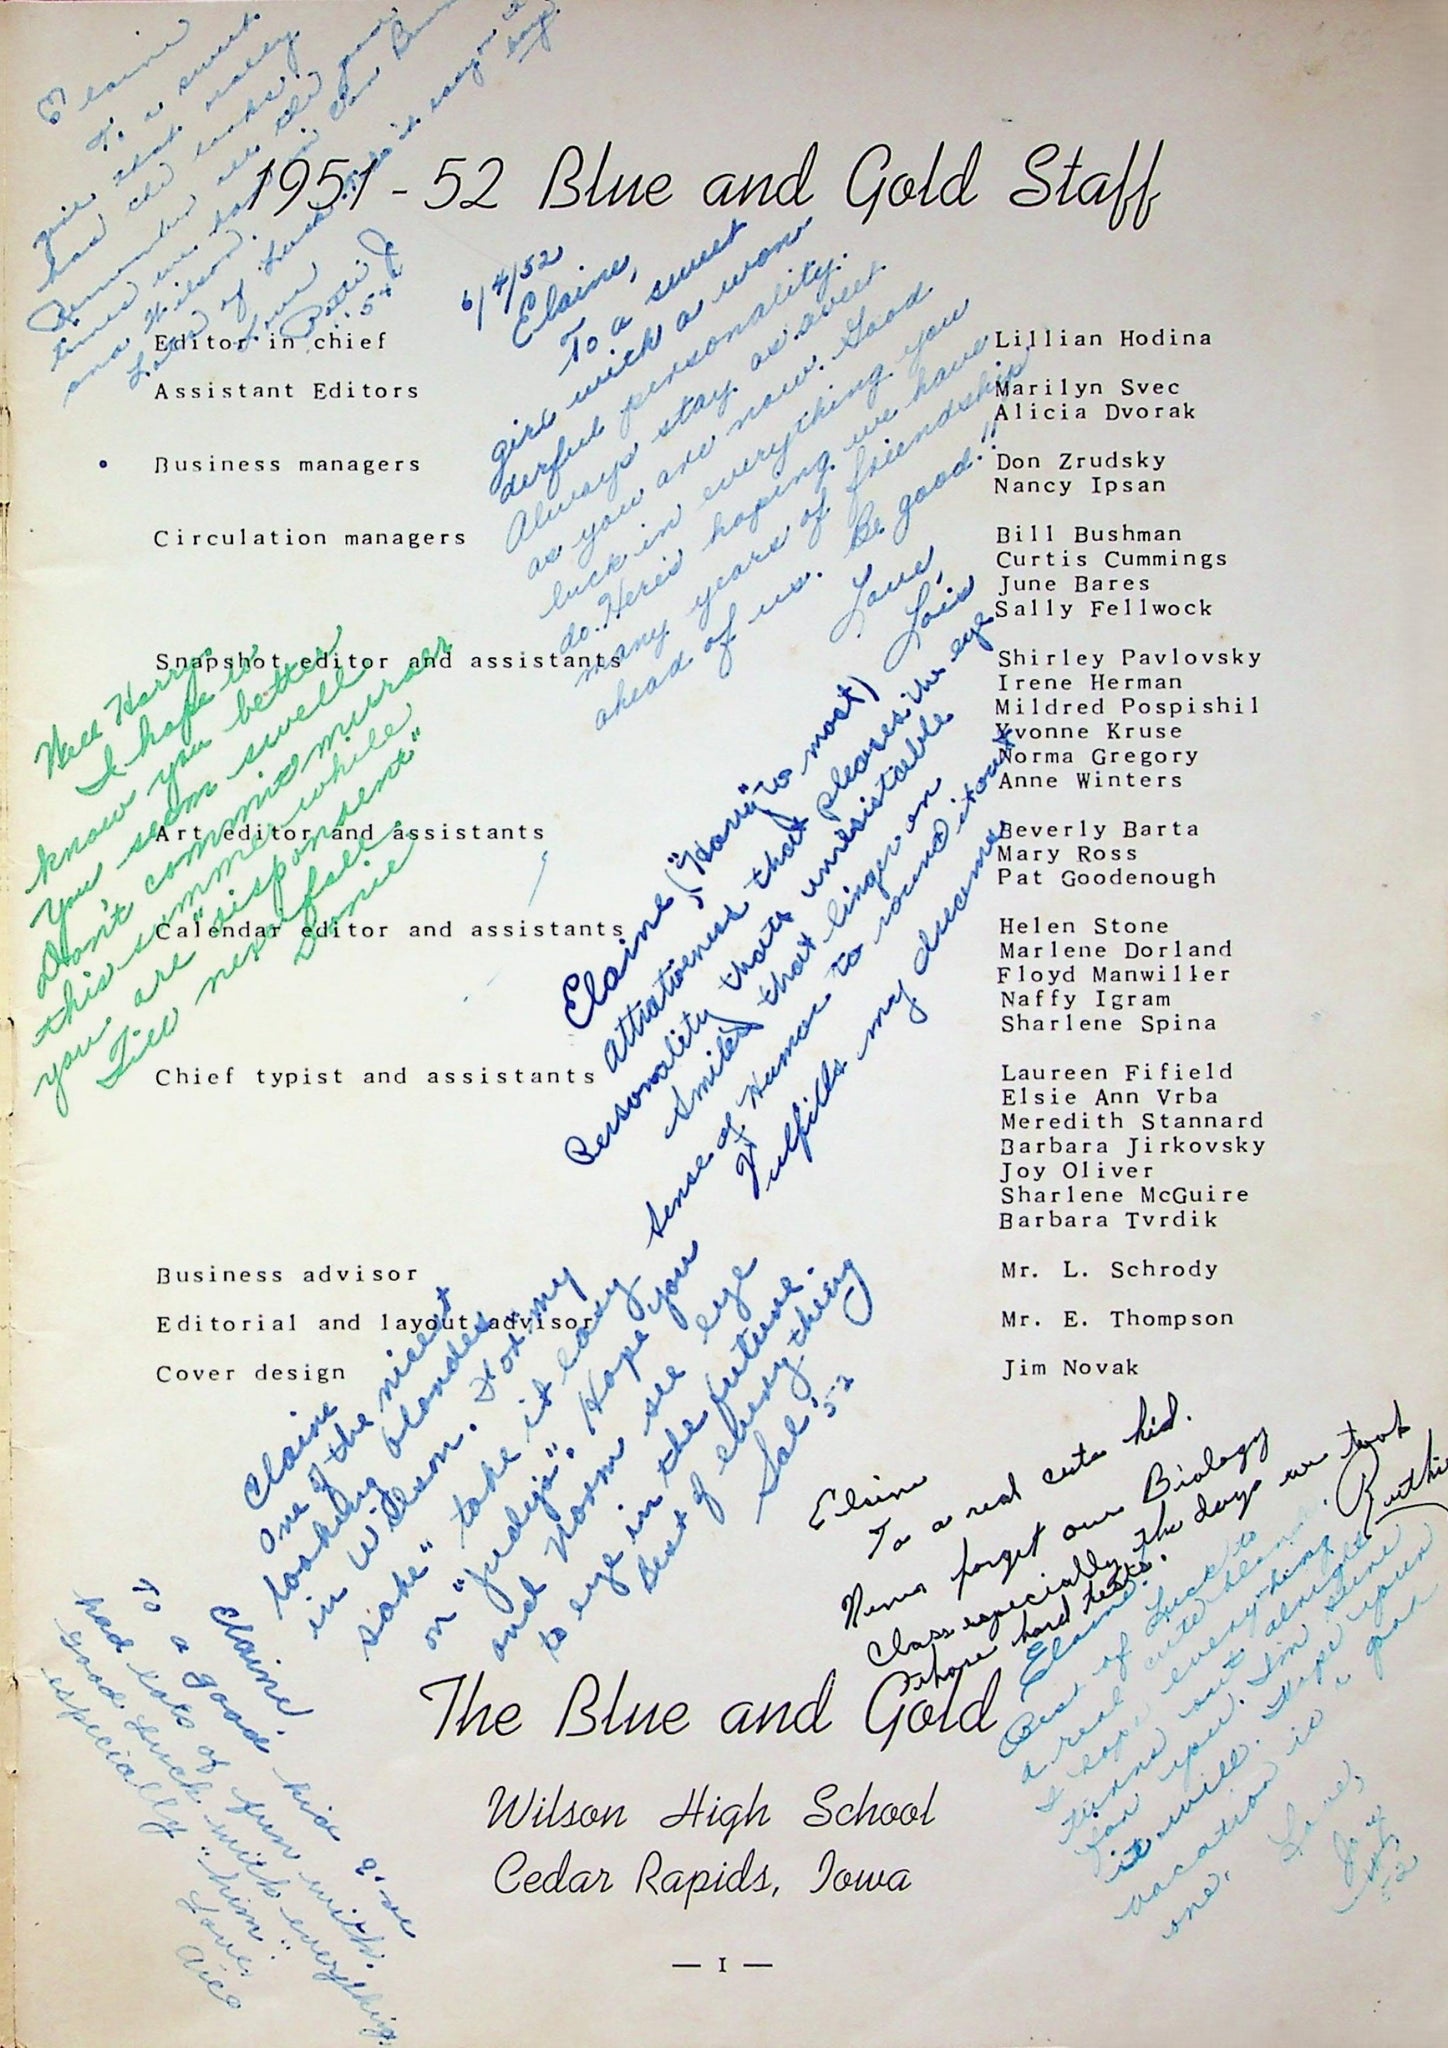 1951-52 Blue and Gold Staff
Elaine
To a sweet
girl that really
has the looks.
Remember all the good
times we had in
and Wilson.
Lots of luck
Love
Patti J
'54
6/4/52
Elaine,
To a sweet
girl with a won-
derful personality.
Always stay as sweet
as you are now. Good
luck in everything you
do. Here's hoping we have
many years of friendship
ahead of us. Be good!!
Love,
Lois
Editor in chief Lillian Hodina
Assistant Editors Marilyn Svec
Alicia Dvorak
Business managers Don Zrudsky
Nancy Ipsan
Circulation managers Bill Bushman
Curtis Cummings
June Bares
Sally Fellwock
Snapshot editor and assistants Shirley Pavlovsky
Irene Herman
Mildred Pospishil
Yvonne Kruse
Norma Gregory
Anne Winters
Art editor and assistants Beverly Barta
Mary Ross
Pat Goodenough
Calendar editor and assistants Helen Stone
Marlene Dorland
Floyd Manwiller
Naffy Igram
Sharlene Spina
Chief typist and assistants Laureen Fifield
Elsie Ann Vrba
Meredith Stannard
Barbara Jirkovsky
Joy Oliver
Sharlene McGuire
Barbara Tvrdik
Business advisor Mr. L. Schrody
Editorial and layout advisor Mr. E. Thompson
Cover design Jim Novak
Well Harry
I hope to
know you better
You seem swell
Don't commit murder
this summer while
you are "dispondent"
Till next fall
Donie
Elaine ("Harry" to most)
Attrativeness that pleases the eye
Personality thats unresistable
Smiles that linger on
Sense of Humor to round it out
It fulfills my dreams
Elaine
One of the nicest
looking blondes
in Wilson. For my
sake" take it easy
on "Judyo". Hope you
and Norm see eye
to eye in the future.
Best of everything
Sal '52
Elaine
To a real cute kid.
Never forget our Biology
Class especially the days we took
those hard tests.
Ruthie
Elaine:
Best of Luck to
a real cute blonde.
I hope everything
turns out alright
for you. I'm sure
it will. Hope your
vacation is a good
one.
Love,
Joy
52
Elaine,
To a good kid I've
had lots of fun with.
Good luck with everything
especially "him".
Love,
Alice
The Blue and Gold
Wilson High School
Cedar Rapids, Iowa
— I —